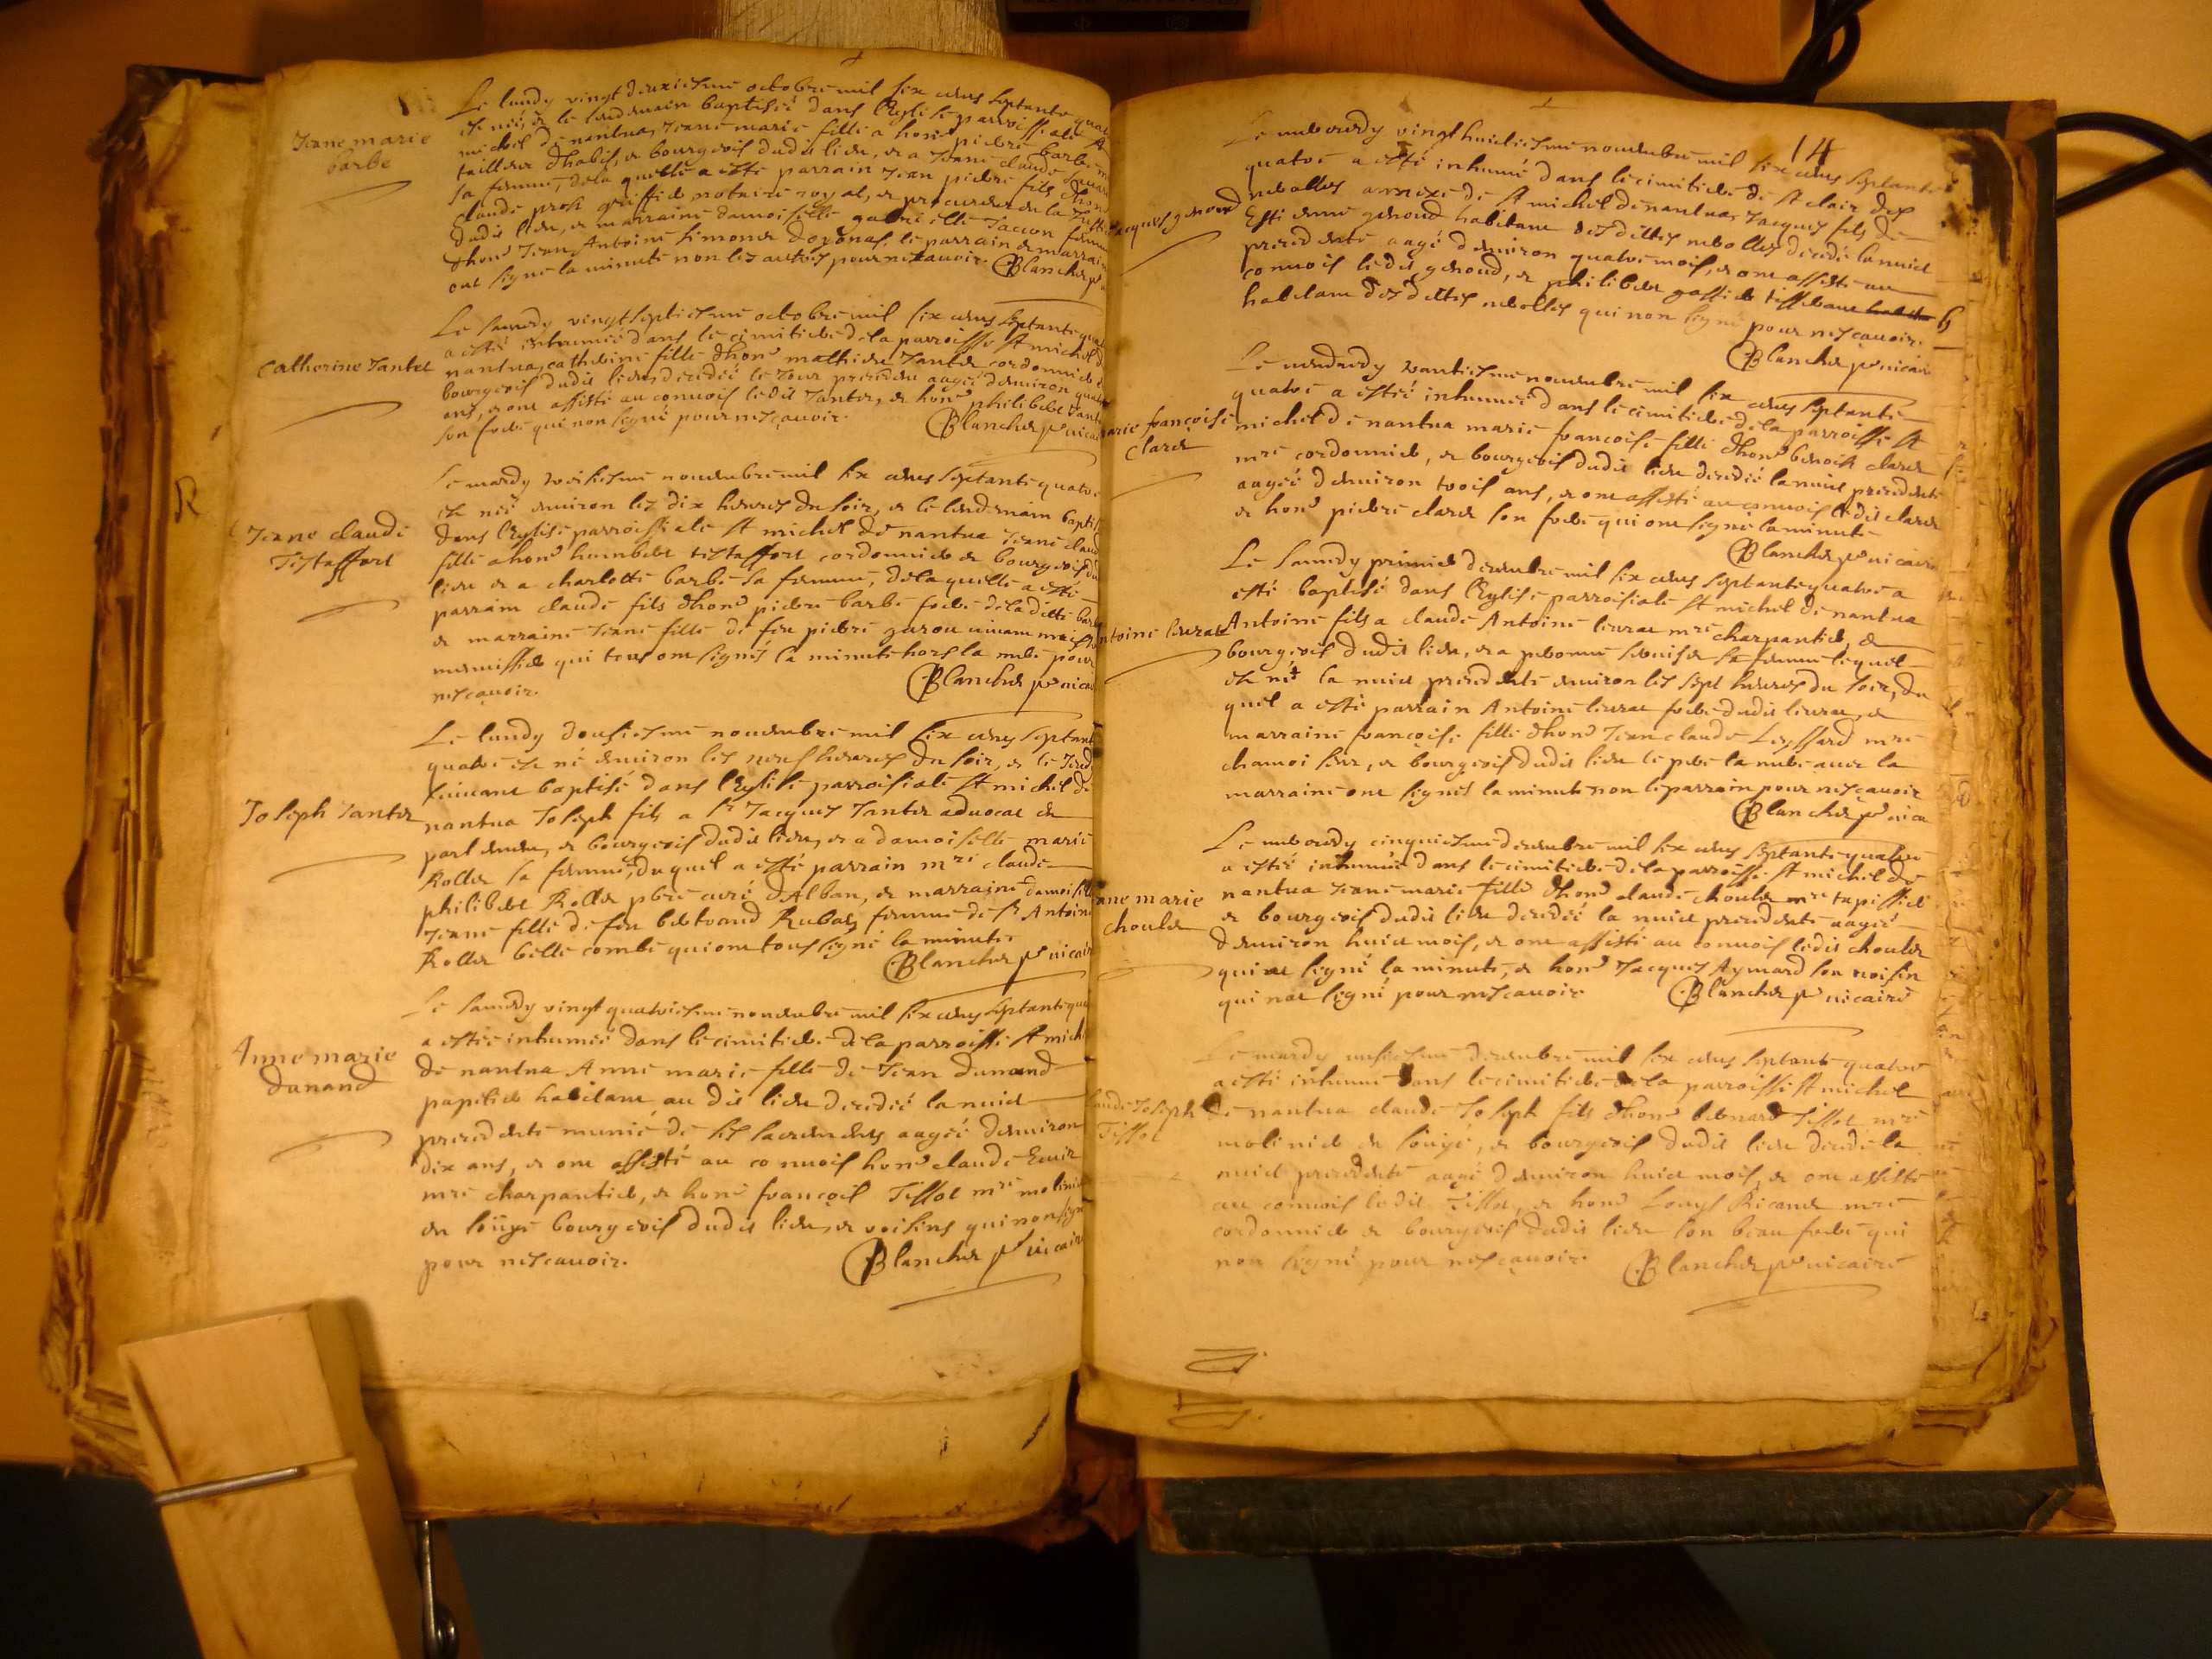 Jeane marie
barbe
Le lundy vingt deuxiesme octobre mil six cens septante
et née, et le lendemain baptisée dans l'Eglise parroissiale St
michel de nantua, Jeane marie fille a honé pierre barbe
tailleur dhabis, et bourgeois dudit lieu, et a Jeane claude
sa femme, de la quelle a esté parrain Jean pierre fils dhoné
claude prost greffier notaire royal, et procureur en la
dudit lieu, et marraine damoiselle gabrielle Jacon femme
dhoné Jean Antoine simonet doyonas, le parrain et marraine
ont signé la minute non les autres pour ne scavoir. Blanchet pr
Catherine Jantet
Le samedy vingt septiesme octobre mil six cens septante
a estée inhumée dans le cimitiere de la parroisse St michel
nantua, catherine fille dhoné mathieu Jantet cordonnier
bourgeois dudit lieu, decedée le jour precedent aagée denviron
ans, et ont assisté au convois ledit Jantet, et honé philibert Jantet
son frere qui non signé pour ne scavoir. Blanchet pr vicai
Jeane claude
Tistaffort
Le mardy treisiesme novembre mil six cens septante quatre
et née environ les dix heures du soir, et le lendemain
dans l'Eglise parroissiale St michel de nantua Jeane claude
fille a honé humbert tistaffort cordonnier et bourgeois du
lieu et a charlotte barbe sa femme, de la quelle a esté
parrain claude fils dhoné pierre barbe frere de la ditte
et marraine Jeane fille de feu pierre vivant mre
menuissier qui tous ont signés la minute hors la mere pour
ne scavoir. Blanchet pr vicai
Joseph Jantet
Le lundy dousiesme novembre mil six cens septante
quatre et né environ les neuf heures du soir, et le
suivant baptisé dans l'Eglise parroissiale St michel de
nantua Joseph fils a Sr Jacques Jantet advocat en
parlement, et bourgeois dudit lieu, et a damoiselle marie
Rollet sa femme, duquel a esté parrain mre claude
philibert Rollet pbre curé dAlban, et marraine damoiselle
Jeane fille de feu bertrand Rubat, femme de Sr Antoine
Rollet belle combe qui ont tous signé la minute
Blanchet pr vicaire
Anne marie
dunand
Le samedy vingt quatriesme novembre mil six cens septante
a estée inhumée dans le cimitiere de la parroisse St michel
de nantua Anne marie fille de Jean dunand
papetier habitant au dit lieu decedée la nuict
precedente munie de ses sacremens aagée denviron
dix ans, et ont assisté au convois honé claude
mre charpantier, et honé françois Tissot mre molinier
en soÿe bourgeois dudit lieu, et voisins qui non signé
pour ne scavoir. Blanchet pr vicaire
14
Jacques genoud
Le mecredy vingt huictiesme novembre mil six cens septante
quatre a esté inhumé dans le cimitiere de St clair des
neirolles annexe de St michel de nantua, Jacques fils de
Estienne genoud habitant desdittes neirolles decedé la nuict
precedente aagé denviron quatre mois, et ont assisté au
convois ledit genoud, et philibert tisserant
habitant desdittes neirolles qui non signé pour ne scavoir.
Blanchet pr vicai
marie françoise
claret
Le vendredy trantiesme novembre mil six cens septante
quatre a estée inhumée dans le cimitiere de la parroisse St
michel de nantua marie françoise fille dhoné benoist claret
mre cordonnier, et bourgeois dudit lieu decedée la nuict precedente
aagée denviron trois ans, et ont assisté au convois ledit claret
et honé pierre claret son frere qui ont signé la minute
Blanchet pr vicaire
Antoine livrat
Le samedy premier decembre mil six cens septante quatre a
esté baptisé dans l'Eglise parroissiale St michel de nantua
Antoine fils a claude Antoine livrat mre charpantier, et
bourgeois dudit lieu, et a sa femme lequel
et né la nuict precedente environ les sept heures du soir, du
quel a esté parrain Antoine livrat frere dudit livrat, et
marraine françoise fille dhoné Jean claude mre
chamoiseur, et bourgeois dudit lieu le pere la mere avec la
marraine ont signés la minute non le parrain pour ne scavoir
Blanchet pr vica
Jeane marie
choulet
Le mecredy cinquiesme decembre mil six cens septante quatre
a estée inhumée dans le cimitiere de la parroisse St michel de
nantua Jeane marie fille dhoné claude choulet mre tapissier
et bourgeois dudit lieu decedée la nuict precedente aagée
denviron huict mois, et ont assisté au convois ledit choulet
qui at signé la minute, et honé Jacques Aymard son voisin
qui nat signé pour ne scavoir. Blanchet pr vicaire
Claude Joseph
Tissot
Le mardy unsiesme decembre mil six cens septante quatre
a esté inhumé dans le cimitiere de la parroisse St michel
de nantua claude Joseph fils dhoné bernard Tissot mre
molinier en soÿe, et bourgeois dudit lieu decedé la
nuict precedente aagé denviron huict mois, et ont assisté
au convois ledit Tissot, et honé Louys mre
cordonnier et bourgeois dudit lieu son beau frere qui
non signé pour ne scavoir. Blanchet pr vicaire